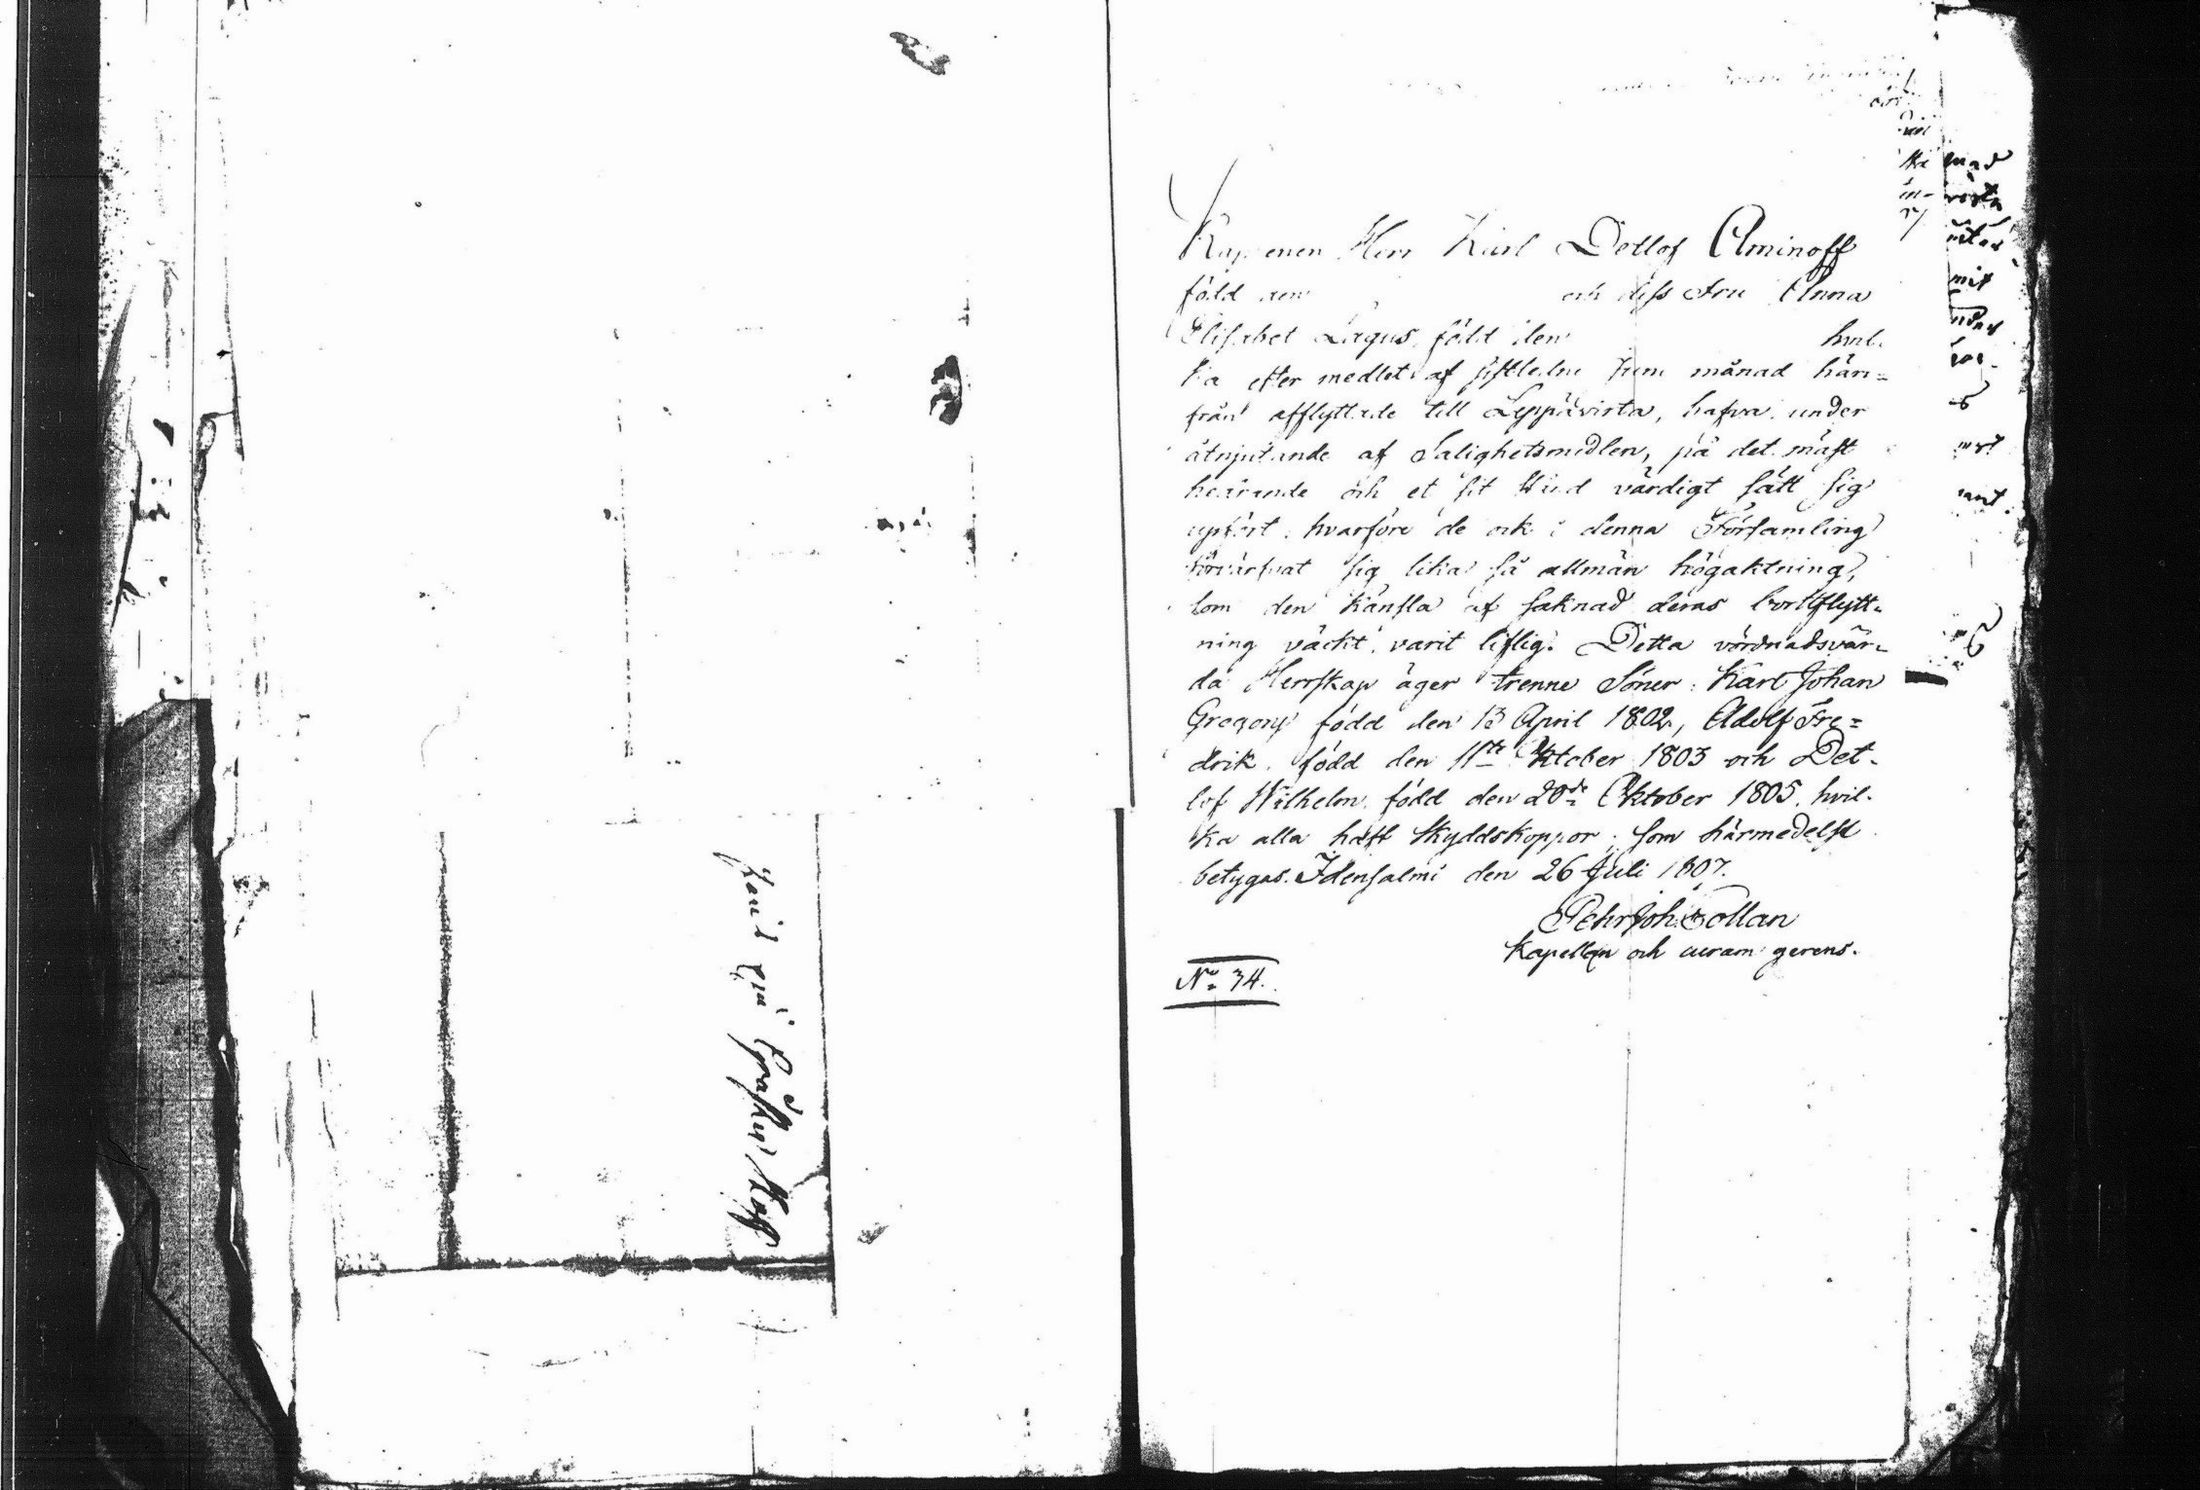 Kaptenen Herr Karl Detlof Aminoff
född den och dess Fru Anna
Elisabet Lagus, född den hvil-
ka efter medlet af sistledne Juni månad här=
från afflyttade till Leppävirta, hafva under
åtnjutande af Salighetsmedlen, på det mäst
hedrande och et sit Stånd värdigt sätt sig
upfört, hvarföre de ock i denna Församling
förvärfvat sig lika så allmän högaktning,
som den känsla af saknad deras bortflytt-
ning väckt, varit liflig. Detta vördnadsvär-
da Herrskap äger trenne Söner: Karl Johan
Gregori född den 13 April 1802, Adolf Fre=
drik, född den 11te Oktober 1803 och Det-
lof Wilhelm, född den 20de Oktober 1805, hvil-
ka alla haft Skyddskoppor; som härmedelst
betygas. Idensalmi den 26 Juli 1807.
Pehr Joh. Collan
Kapellan och curam gerens.
No 34.